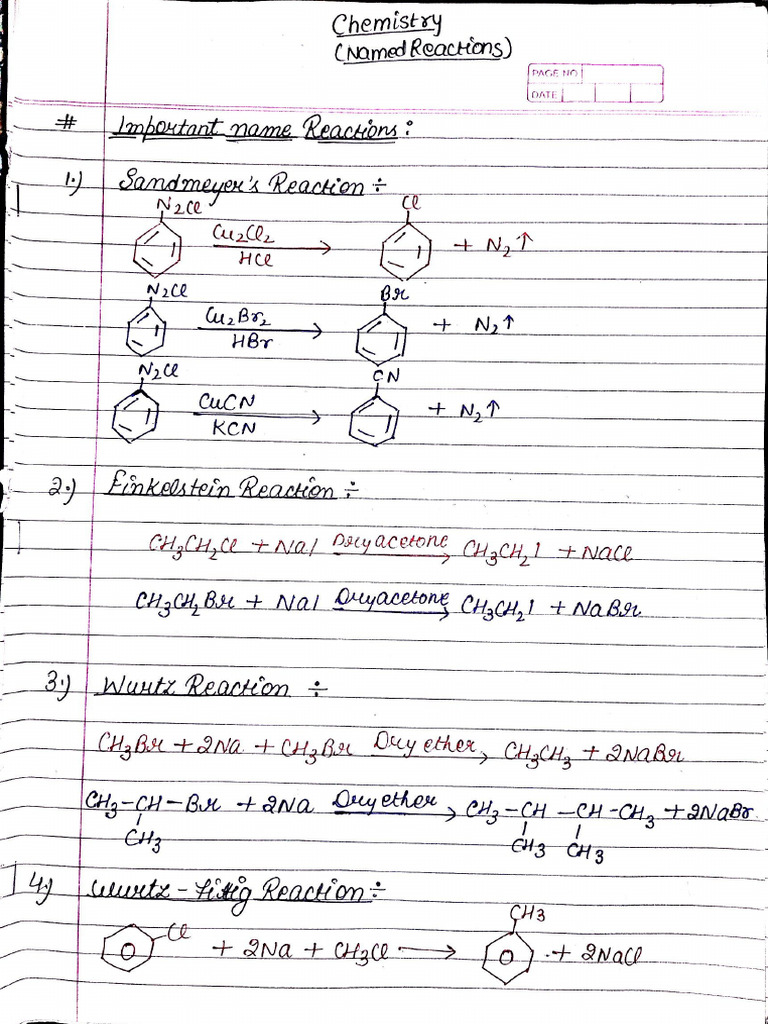 Chemistry
(Named Reactions)
PAGE NO
DATE
# Important name Reactions :
1.) Sandmeyer's Reaction ÷
N2Cl Cl
Cu2Cl2
HCl
+ N2↑
N2Cl Br
Cu2Br2
HBr
+ N2↑
N2Cl CN
CuCN
KCN
+ N2↑
2.) Finkelstein Reaction ÷
CH3CH2Cl + NaI Dry acetone → CH3CH2I + NaCl
CH3CH2Br + NaI Dry acetone → CH3CH2I + NaBr
3.) Wurtz Reaction ÷
CH3Br + 2Na + CH3Br Dry ether → CH3CH3 + 2NaBr
CH3-CH-Br + 2Na Dry ether → CH3-CH-CH-CH3 + 2NaBr
CH3 CH3 CH3
4.) Wurtz-Fittig Reaction ÷
Cl CH3
+ 2Na + CH3Cl → + 2NaCl